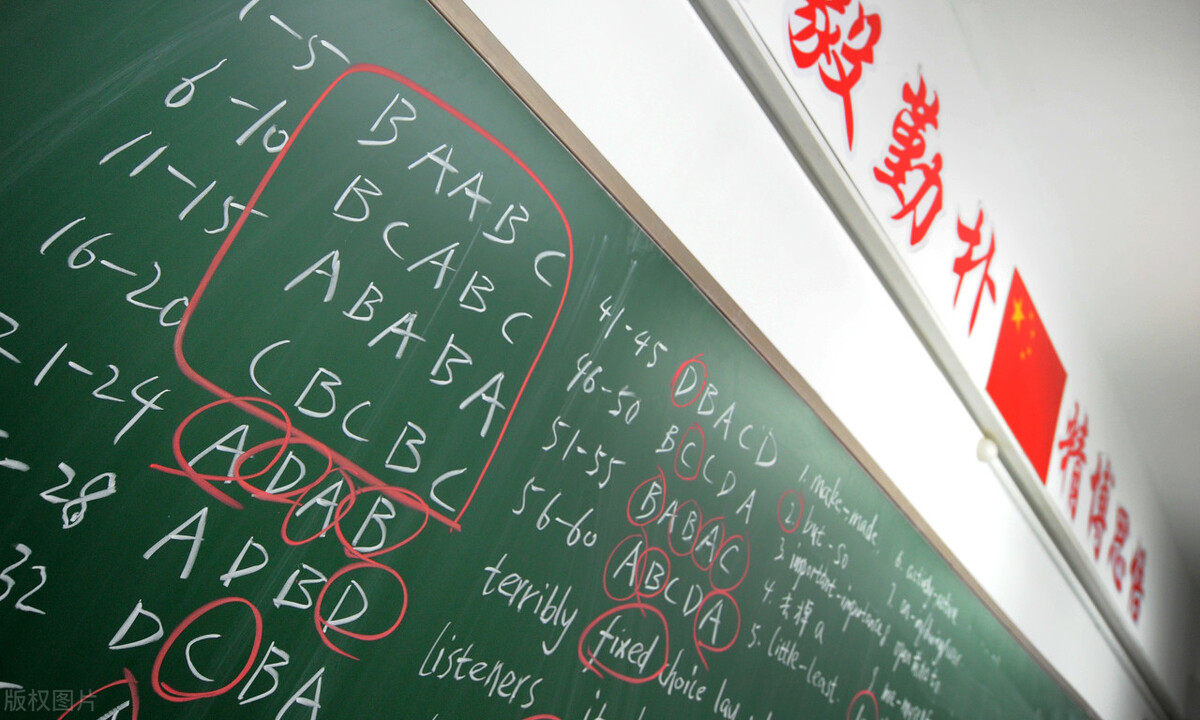 毅 勤 朴
精 博 思 睿
1-5 BAABC
6-10 BCABC
11-15 ABABA
16-20 CBCBC
21-24 ADAB
-28 ADBD
32 DCBA
41-45 DBACD
46-50 BCCDA
51-55 BABAC
56-60 ABCDA
terribly fixed choice
listeners
1. make-made.
2 but-so
3 important-importance
4. 去掉 a
5. little-least.
版权图片